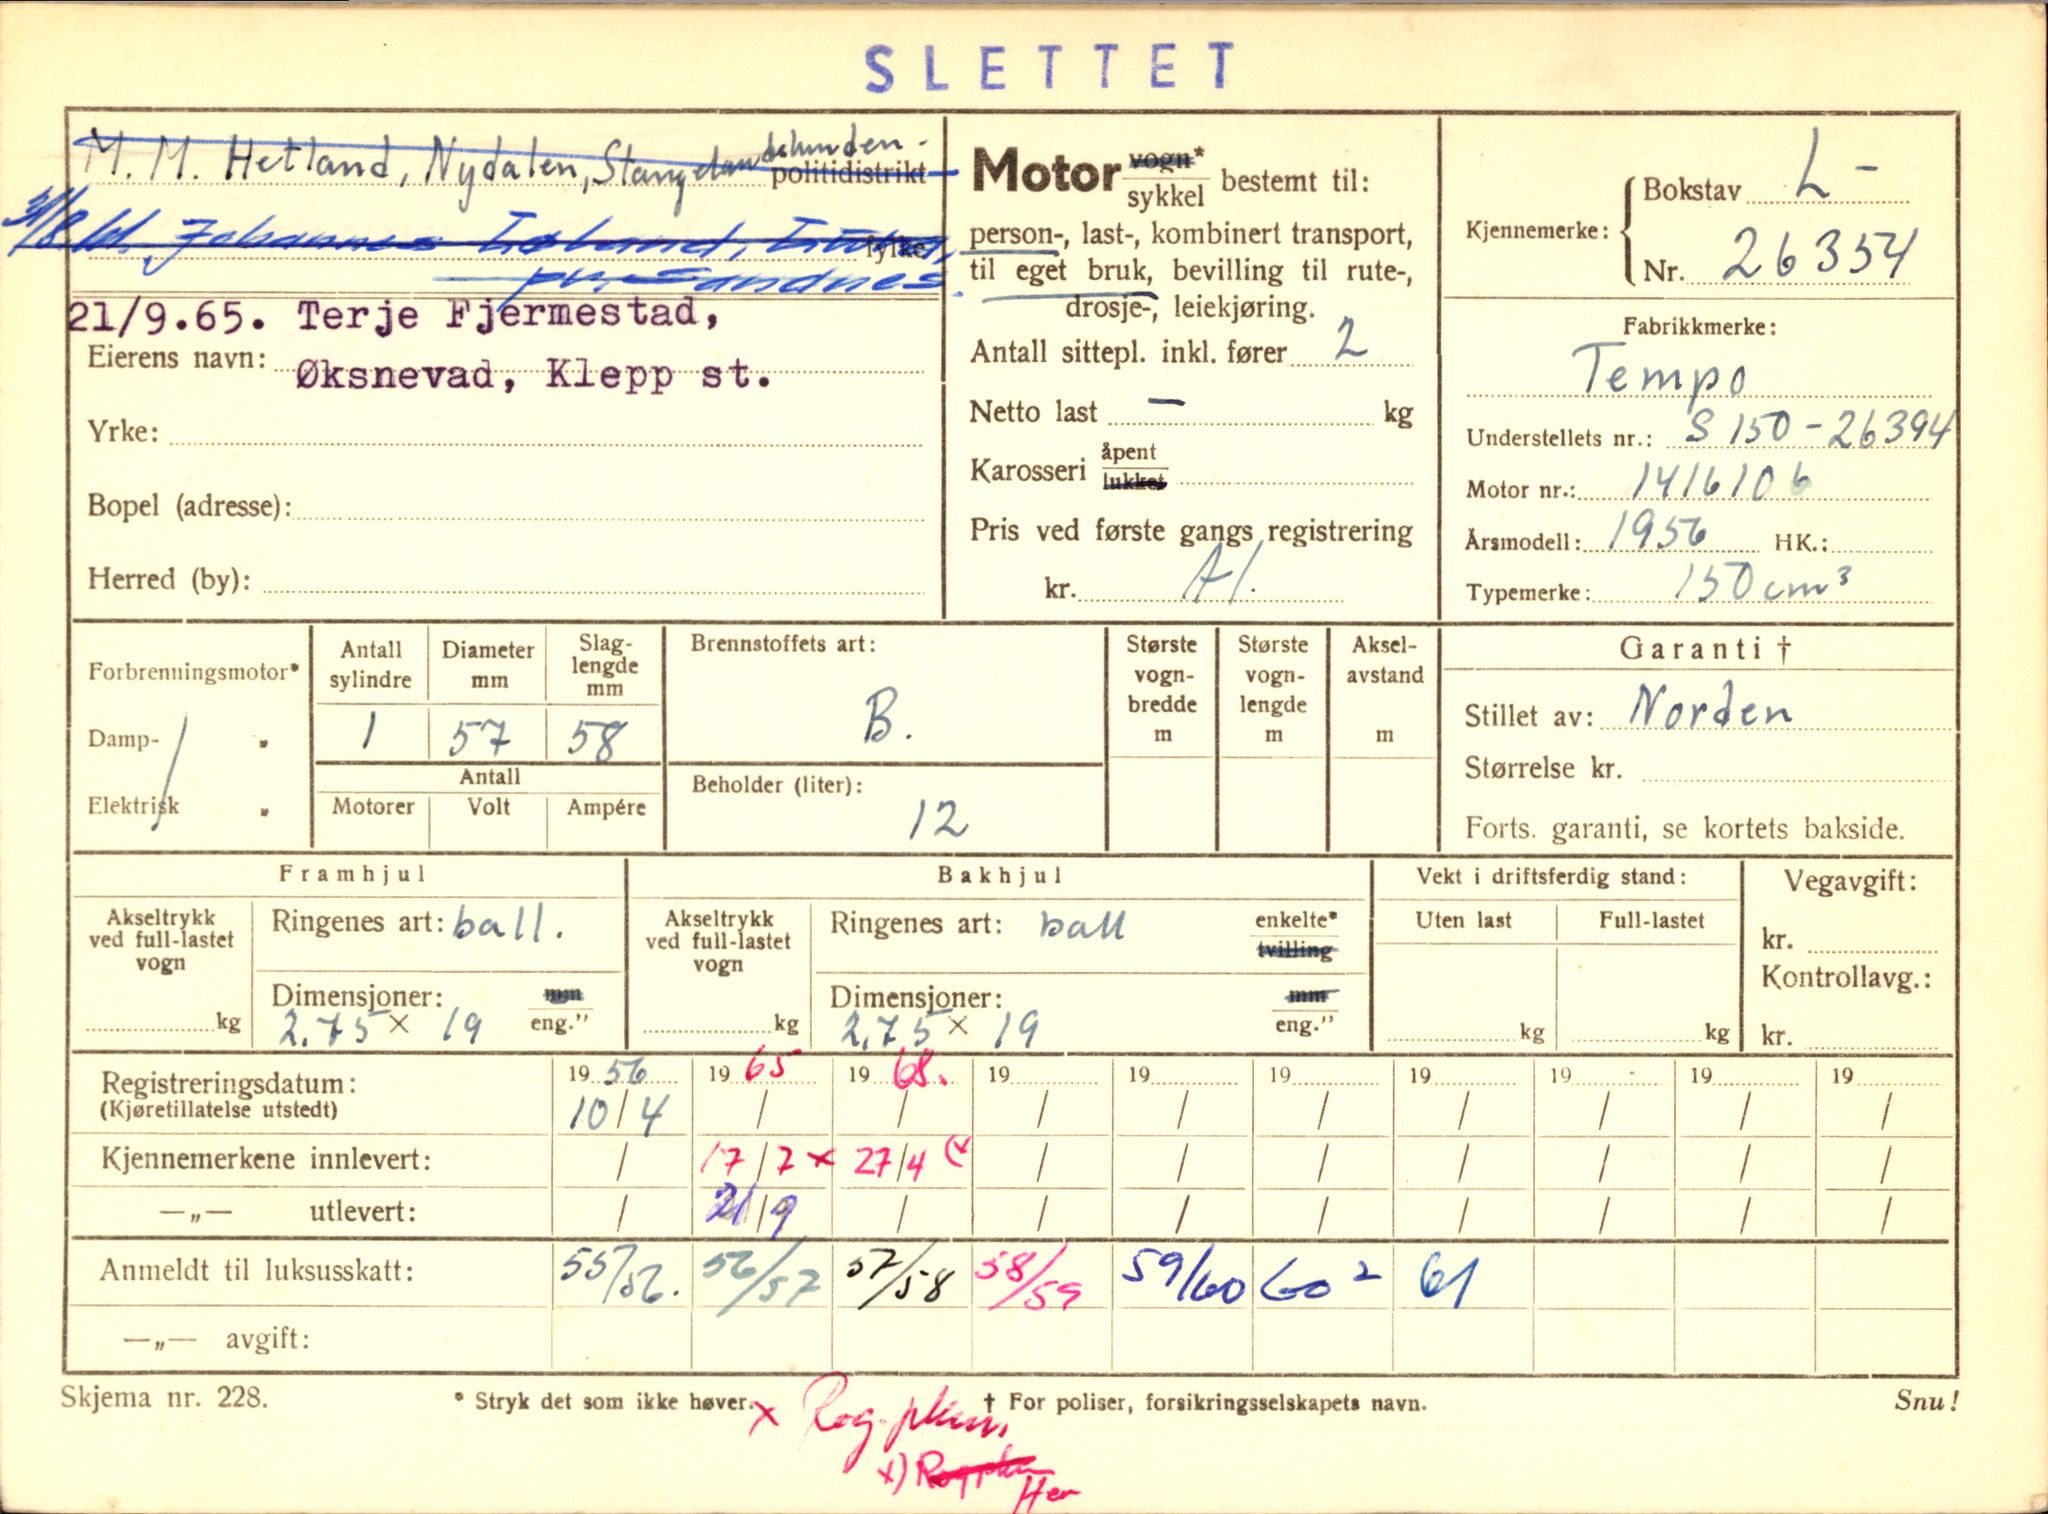 SLETTET
M. M. Hetland, Nydalen, Stangelandslunden -
politidistrikt
31/8 Johannes
fylke
pr. Sandnes.
21/9.65. Terje Fjermestad,
Eierens navn: Øksnevad, Klepp st.
Yrke:
Bopel (adresse):
Herred (by):
Motor vogn* sykkel bestemt til:
person-, last-, kombinert transport,
til eget bruk, bevilling til rute-,
drosje-, leiekjøring.
Antall sittepl. inkl. fører 2
Netto last — kg
Karosseri åpent lukket
Pris ved første gangs registrering
kr. A/.
Kjennemerke: Bokstav L-
Nr. 26354
Fabrikkmerke:
Tempo
Understellets nr.: S 150-26394
Motor nr.: 1416106
Årsmodell: 1956 HK.:
Typemerke: 150 cm³
Forbrenningsmotor*
Damp- „
Elektrisk „
Antall sylindre Diameter mm Slag-lengde mm
1 57 58
Antall
Motorer Volt Ampére
Brennstoffets art:
B.
Beholder (liter):
12
Største vogn-bredde m
Største vogn-lengde m
Aksel-avstand m
Garanti †
Stillet av: Norden
Størrelse kr.
Forts. garanti, se kortets bakside.
Framhjul
Akseltrykk ved full-lastet vogn
kg
Ringenes art: ball.
Dimensjoner: mm
2.75 × 19 eng."
Bakhjul
Akseltrykk ved full-lastet vogn
kg
Ringenes art: ball enkelte* tvilling
Dimensjoner: mm
2.75 × 19 eng."
Vekt i driftsferdig stand:
Uten last Full-lastet
kg kg
Vegavgift:
kr.
Kontrollavg.:
kr.
Registreringsdatum: 19 56 19 65 19 68. 19 19 19 19 19 19 19
(Kjøretillatelse utstedt) 10/4 / / / / / / / / /
Kjennemerkene innlevert: / 17/7 x 27/4 (x / / / / / / /
—„— utlevert: / 21/9 / / / / / / / /
Anmeldt til luksusskatt: 55/56. 56/57 57/58 58/59 59/60 60² 61
—„— avgift:
Skjema nr. 228. * Stryk det som ikke høver. † For poliser, forsikringsselskapets navn. Snu!
x Reg. plan.
x)
Her